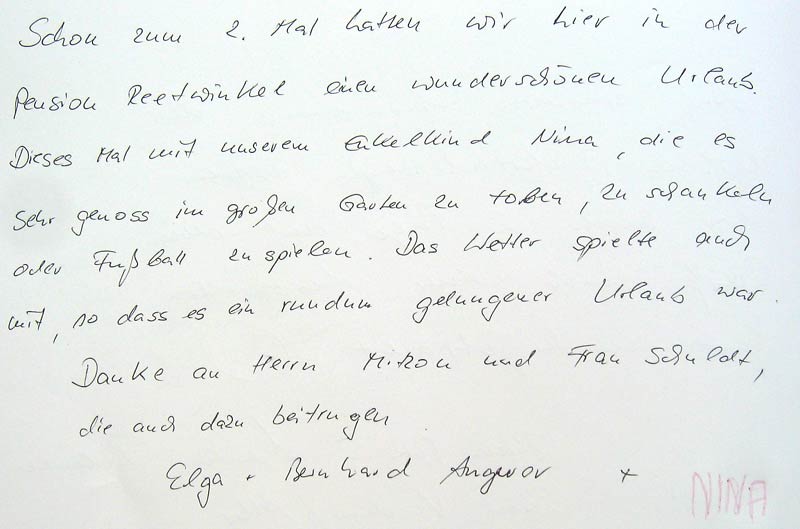 Schon zum 2. Mal hatten wir hier in der
Pension Reetwinkel einen wunderschönen Urlaub.
Dieses Mal mit unserem Enkelkind Nina, die es
sehr genoss im großen Garten zu toben, zu schaukeln
oder Fußball zu spielen. Das Wetter spielte auch
mit, so dass es ein rundum gelungener Urlaub war.
Danke an Herrn und Frau Schuldt,
die auch dazu beitrugen
Elga + Bernhard +
NINA